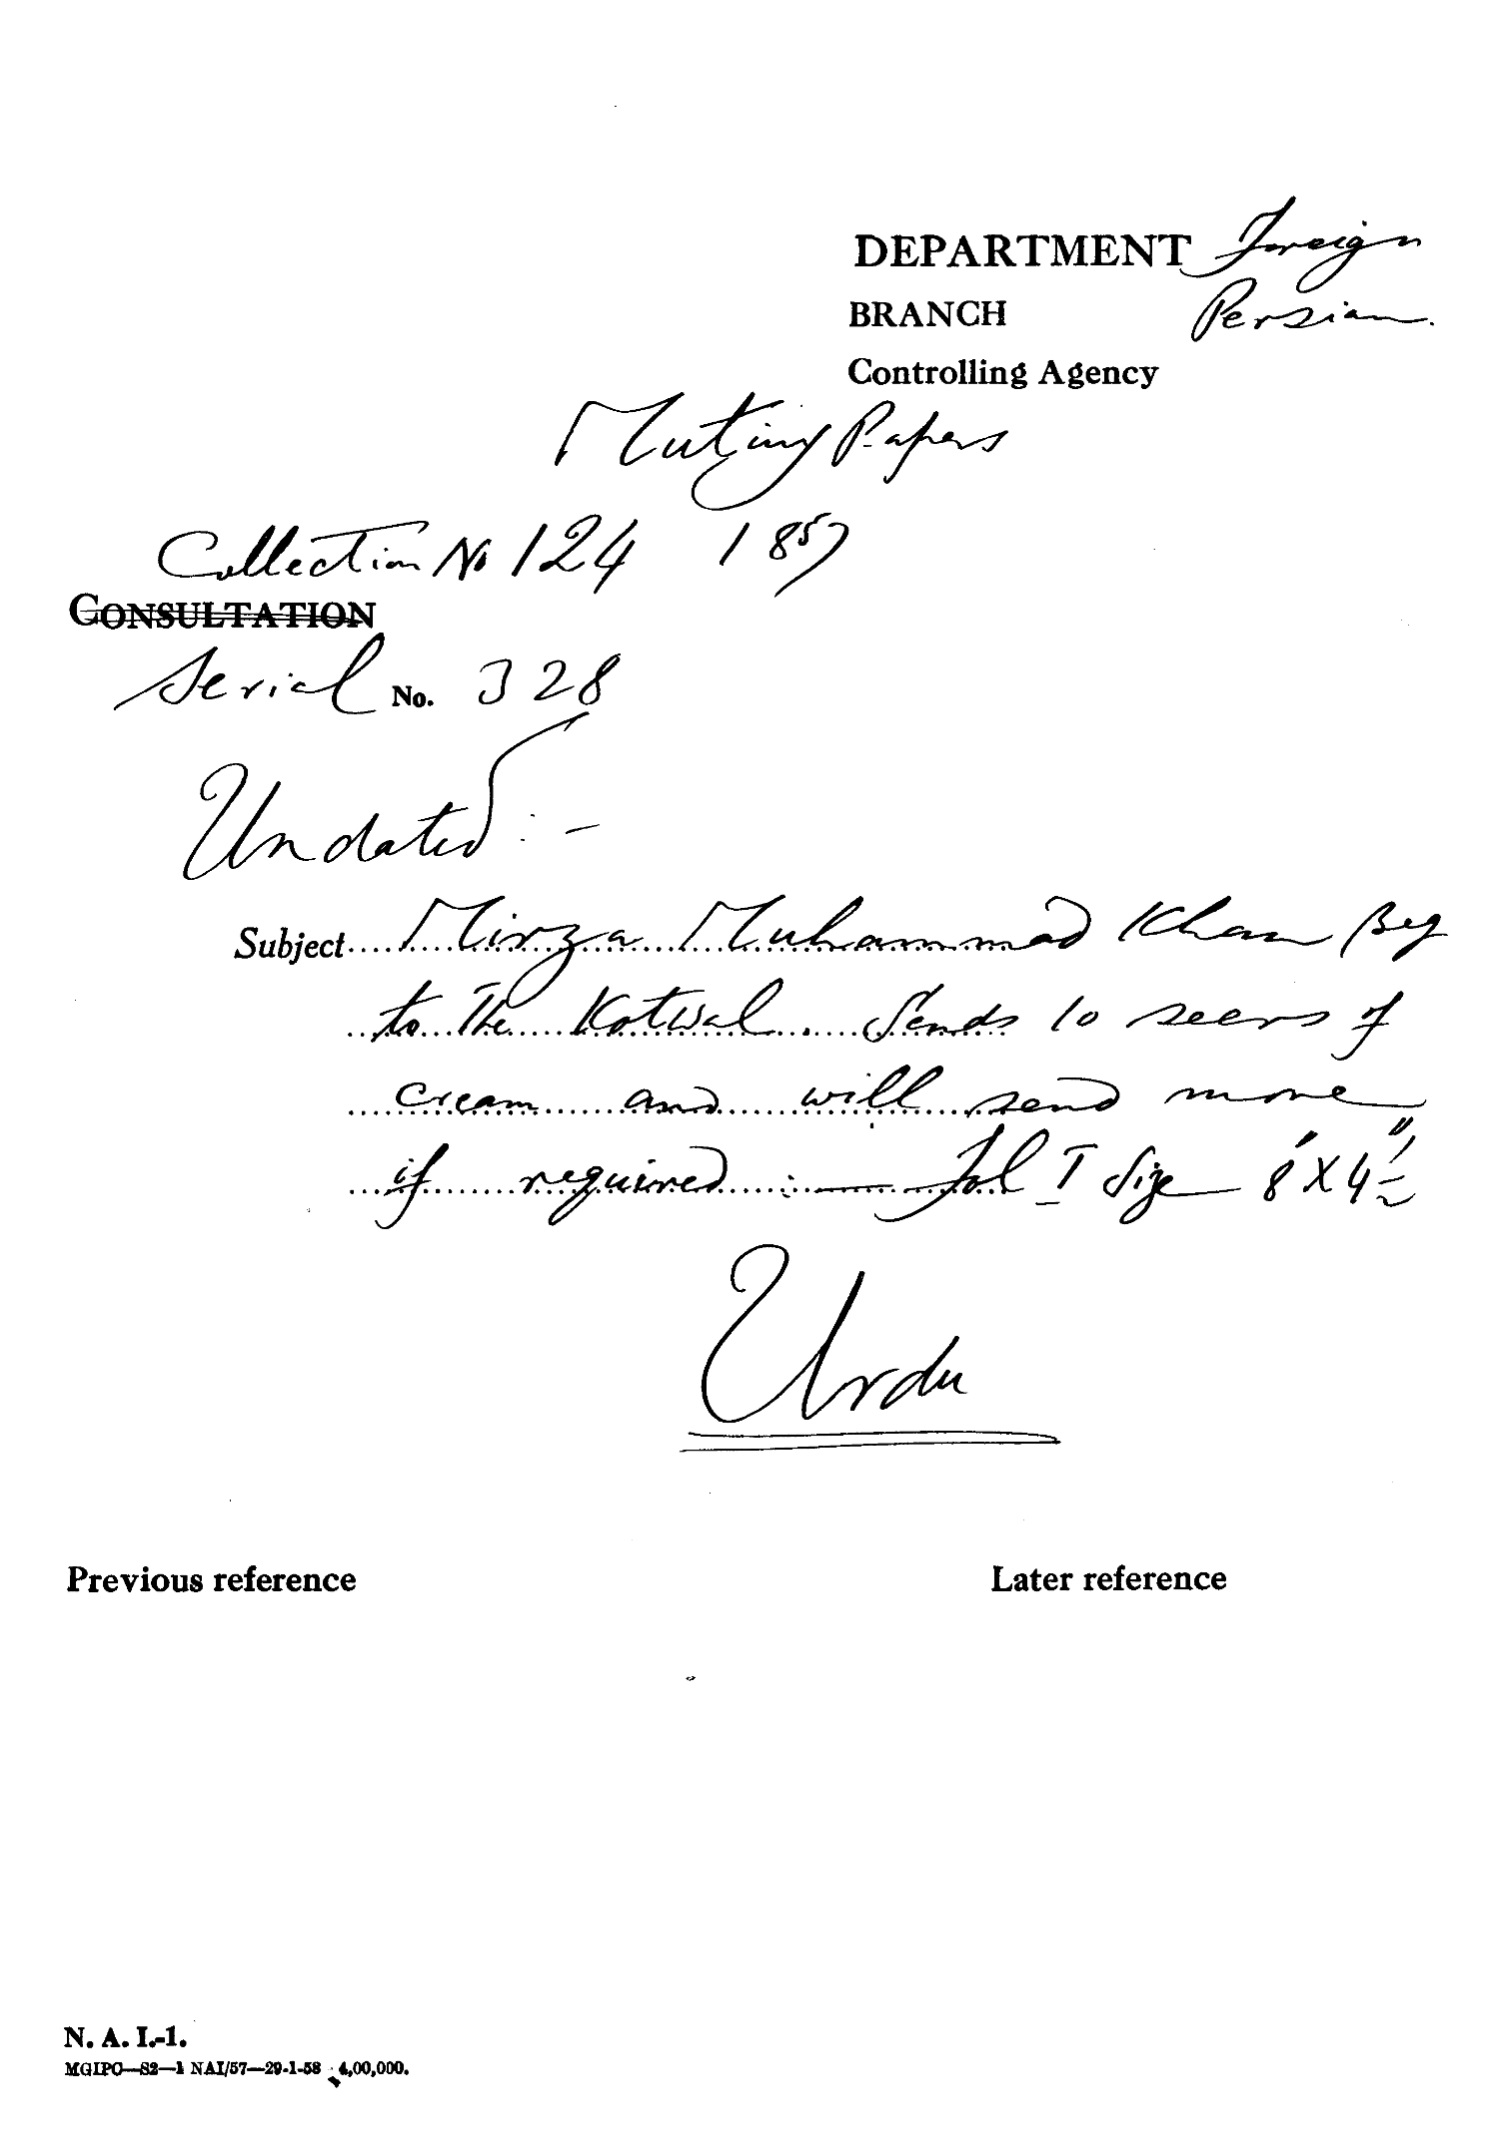 DEPARTMENT Foreign
BRANCH Persian.
Controlling Agency
Mutiny Papers
Collection No 124 1857
CONSULTATION
Serial No. 328
Undated :-
Subject Mirza Muhammad Khan Beg
to The Kotwal. Sends 10 seers of
cream and will send more
if required :— Fol I Size 8" X 4 1/2"
Urdu
Previous reference
Later reference
N. A. I.-1.
MGIPC—S2—1 NAI/57—29-1-58 4,00,000.